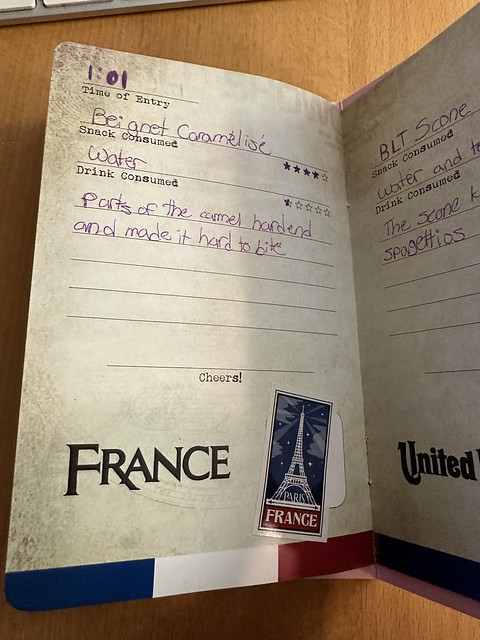 1:01
Time of Entry
Beignet Caramélisé
Snack Consumed
Water
Drink Consumed
Parts of the carmel hardend
and made it hard to bite
Cheers!
FRANCE
PARIS
FRANCE
BLT Scone
Snack Consumed
water and
Drink Consumed
The scone
spagettios
United